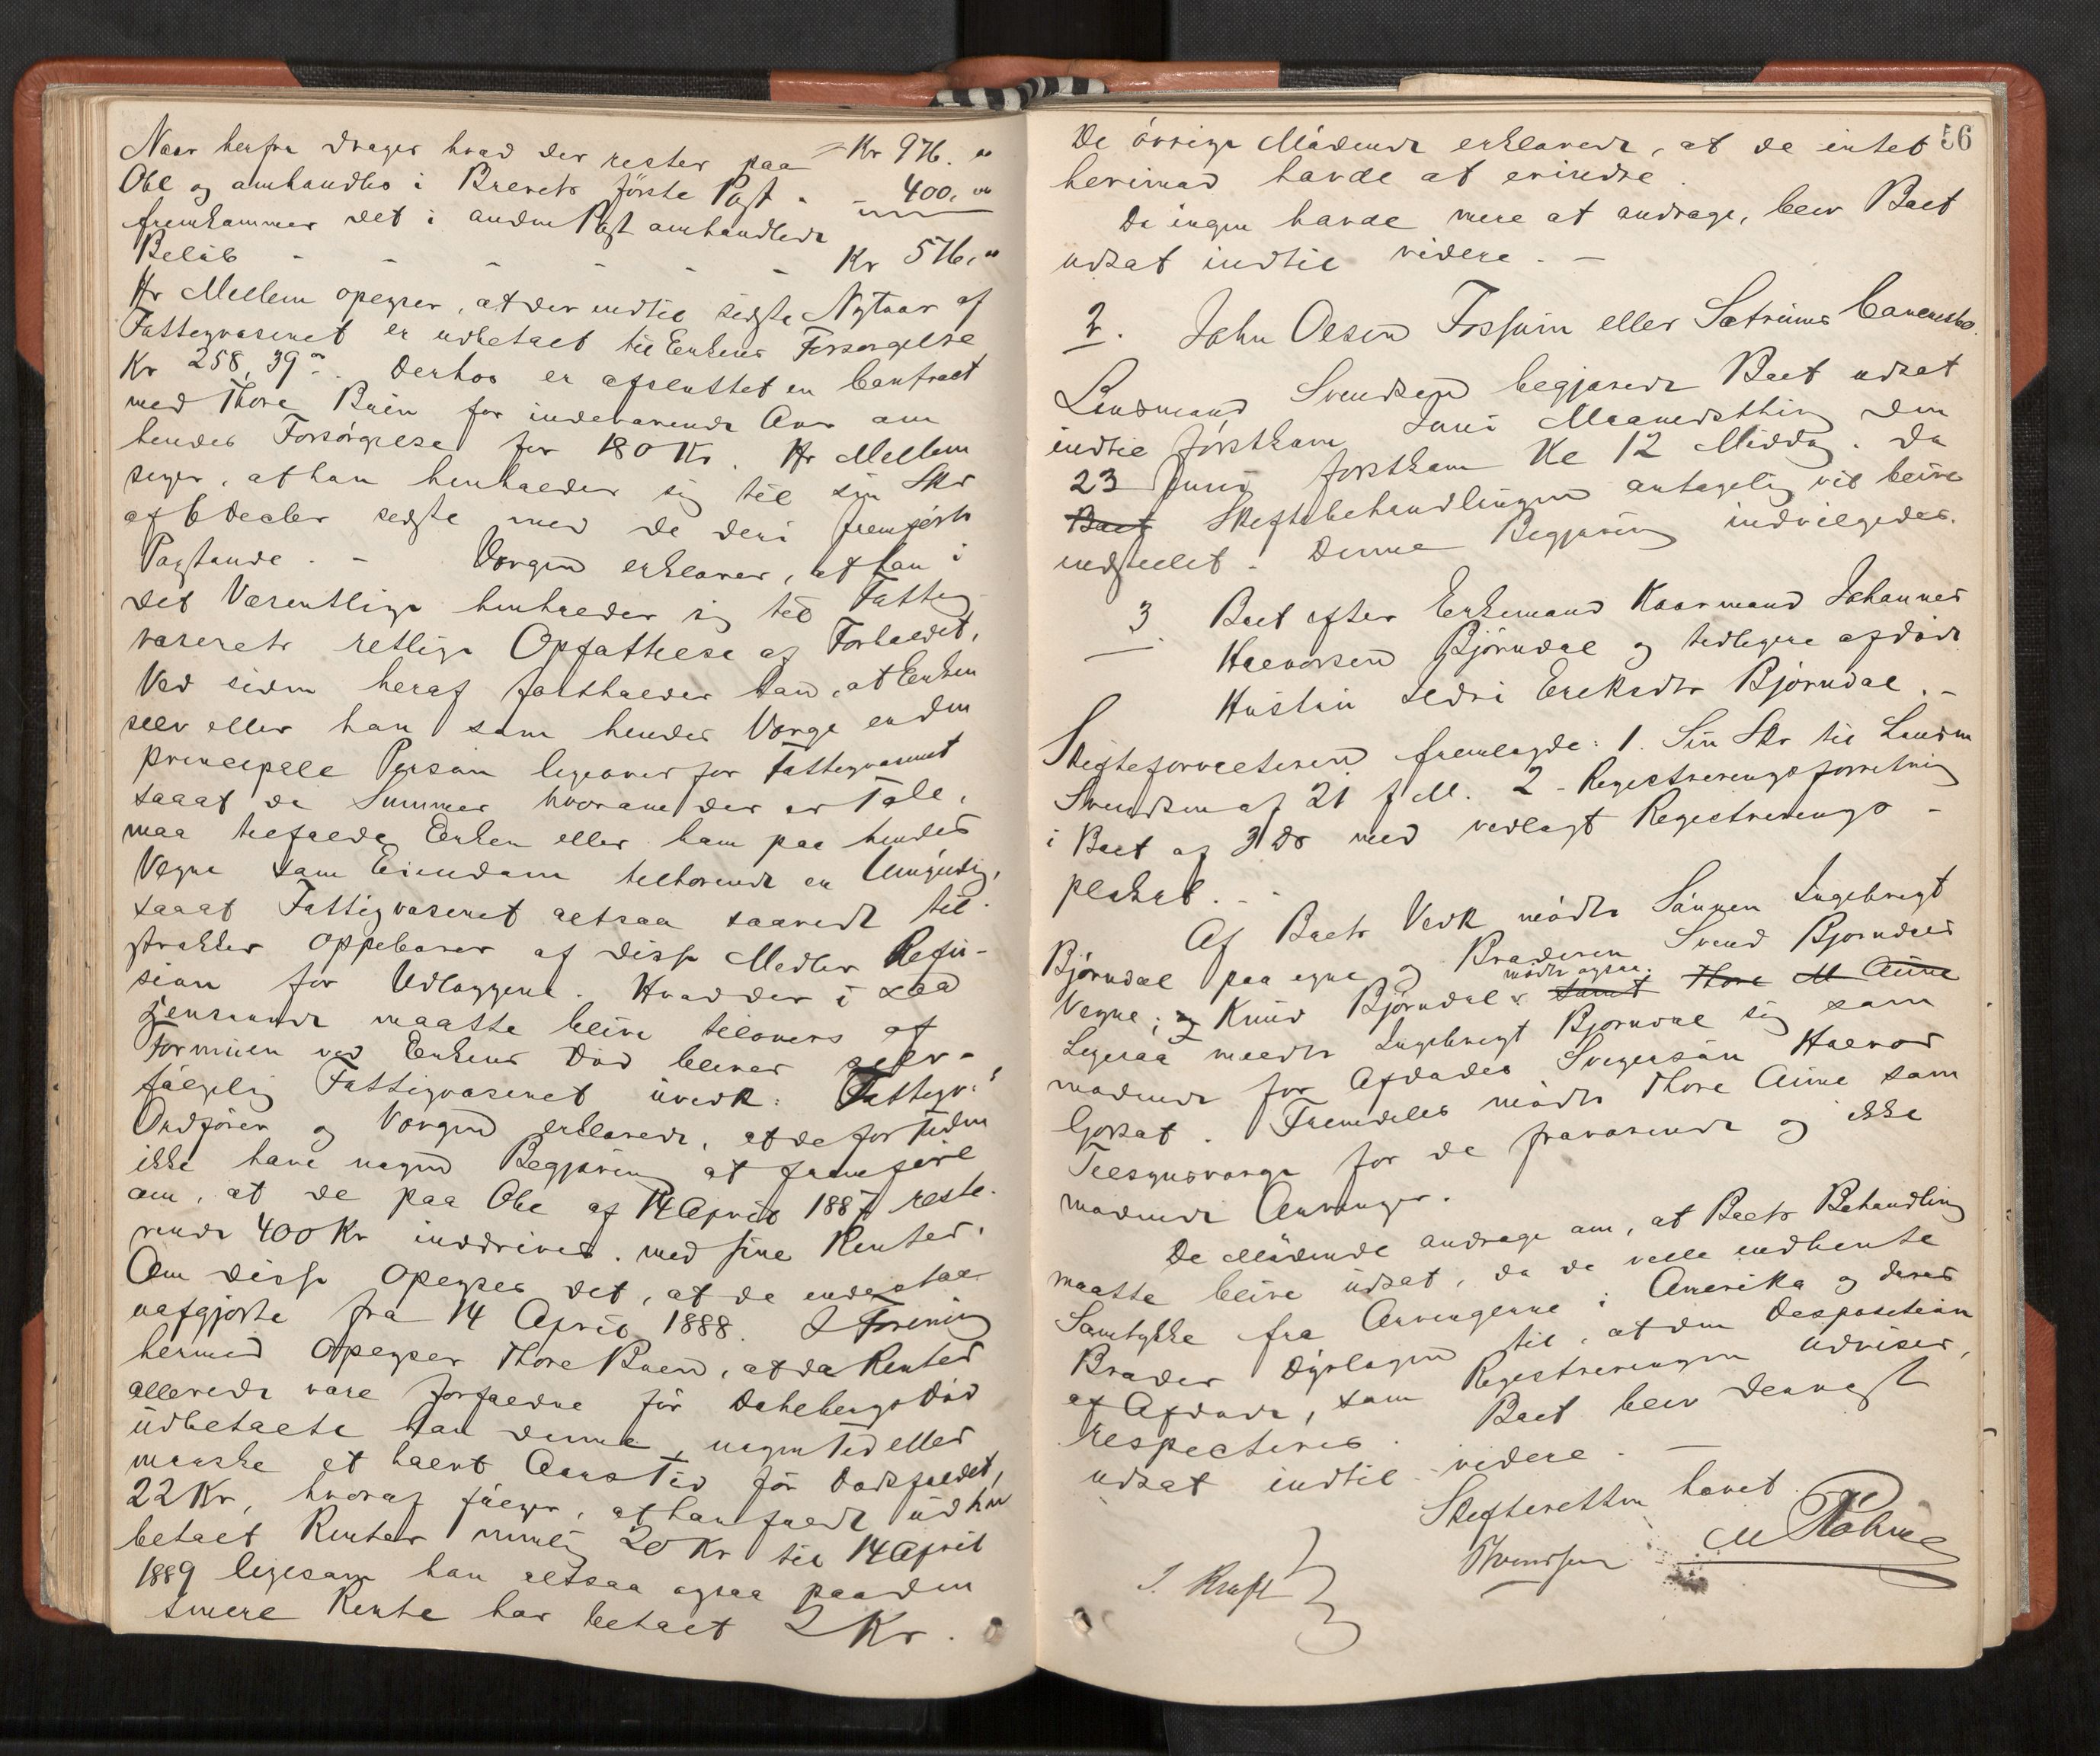 Naar herfra drages hvad der rester paa = Kr 976. "
Obl og omhandles i Brevets förste Post - - 400. "
fremkommer det i anden Post omhandlede
Belöb - - - - - - Kr 576. "
Hr Mellem oplyser, at der indtil sidste Nytaar af
Fattigvæsenet er udbetalt til Enkens Forsørgelse
Kr 258,39. Derhos er afsluttet en Contract
med Thore Buin for indeværende Aar om
hendes Forsörgelse for 180 Kr. Hr Mellem
siger, at han henholder sig til sin Skr
af 6 Decbr sidste med de deri fremförte
Paastande. - Værgen erklærer, at han i
det Væsentlige henholder sig til Fattig
væsenets retlige Opfattelse af Forholdet,
Ved siden heraf fastholder han, at Enken
selv eller han som hendes Værge er den
principale Person ligeoverfor Fattigvæsenet
saaat de Summer hvorom der er Tale,
maa tilfalde Enken eller ham paa hendes
Vegne som Eiendom tilhørende en Umyndig,
saaat Fattigvæsenet altsaa saavidt til
strækker oppebærer af disse Midler Refu-
sion for Udlæggene. Hvad der i saa
henseende maatte blive tilovers af
Formuen ved Enkens Död bliver selv-
fölgelig Fattigvæsenet uvedk: Fattigv:s
Ordförer og Værgen erklærede, at de for Tiden
ikke have nogen Begjæring at fremföre
om, at de paa Obl af 14 April 1887 reste-
rende 400 Kr inddrives med sine Renter.
Om disse oplyses det, at de endnu staa
uafgjorte fra 14 April 1888. I Forening
hermed oplyser Thore Buen, at da Renter
allerede vare forfaldne för Dahlebergs Död
udbetalte han denne, nogen Tid eller
maaske et halvt Aars Tid för Dödsfaldet,
22 Kr, hvoraf fölger, at han havde ud
betalt Renter nemlig 20 Kr til 14 April
1889 ligesom han altsaa ogsaa paa den
senere Rente har betalt 2 Kr.
56
De övrige Mödende erklærede, at de intet
herimod havde at erindre.
Da ingen havde mere at andrage, blev Boet
udsat indtil videre. -
2. John Olsen Fossum eller Sætrums
Lensmand Svendsen begjærede Boet udsat
indtil förstkom Juni Maanedsthing den
23 Juni förstkom Kl 12 Middag. Da
Boet Skiftebehandlingen antagelig vil blive
indstillet. Denne Begjæring indvilgedes.
3 Boet efter Enkemand Kaarmand Johannes
Halvorsen Björndal og tidligere afdöde
Hustru Sidri Eriksdtr Björndal. -
Skifteforvalteren fremlagde: 1. Sin Skr til Lensm
Svendsen af 21 f M. 2 - Registreringsforretning
i Boet af 31 ds med vedlagt Registrerings-
plakat. -
Af Boets Vedk mödte Sönnen Ingebregt
Björndal paa egne og Broderen Svend Bjorndals
Vegne; og Knud Björndal mödte ogsaa. samt Thore M Aune
Ligesaa meldte Ingebregt Bjorndal sig som
mödende for Afdödes Svigersön Halvor
Gorset. Fremdeles mödte Thore Aune som
Tilsynsværge for de fraværende og ikke
mödende Arvinger.
De Mödende androge om, at Boets Behandling
maatte blive udsat, da de ville indhente
Samtykke fra Arvingerne i Amerika og deres
Broder Dyrlægen til, at den Desposition
af Afdöde, som Registreringen udviser,
respecteres. Boet blev dernæst
udsat indtil videre. -
Skifteretten hævet.
I. Kraft Svendsen